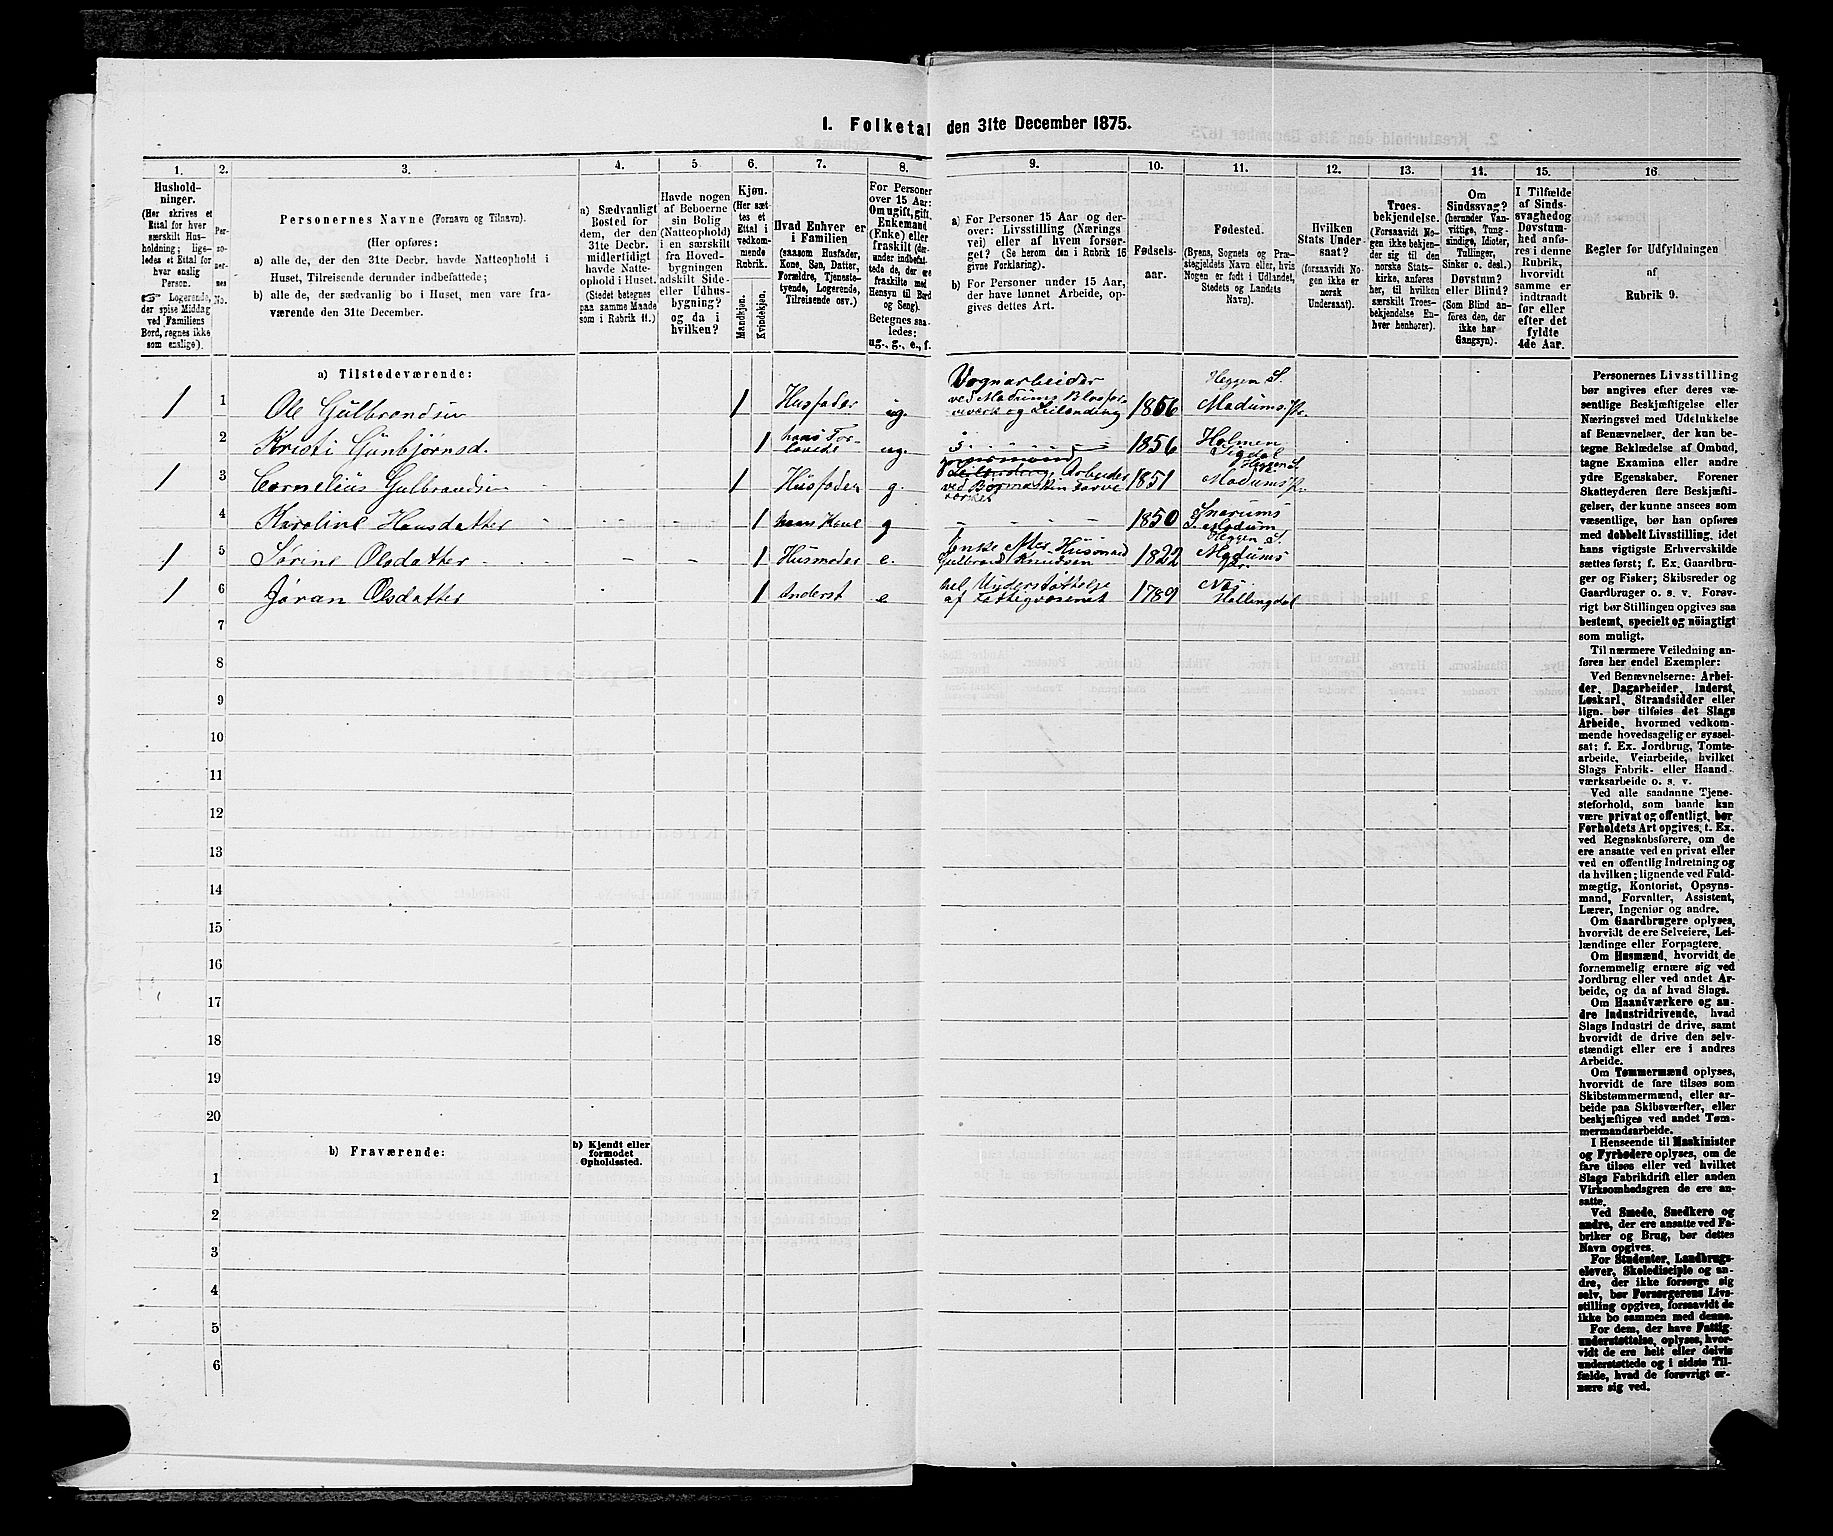 1. Folketal den 31te December 1875.
1. 2. 3. 4. 5. 6. 7. 8. 9. 10. 11. 12. 13. 14. 15. 16.
Hushold-
ninger.
(Her skrives et
Ettal for hver
særskilt Hus-
holdning; lige-
ledes et Ettal for
hver enslig
Person.
☞ Logerende,
der spise Middag
ved Familiens
Bord, regnes ikke
som enslige).
Per-
so-
ner-
nes
No.
Personernes Navne (Fornavn og Tilnavn).
(Her opføres:
a) alle de, der den 31te Decbr. havde Natteophold i
Huset, Tilreisende derunder indbefattede;
b) alle de, der sædvanlig bo i Huset, men vare fra-
værende den 31te December.
a) Sædvanligt
Bosted for
dem, der den
31te Decbr.
midlertidigt
havde Natte-
ophold i Huset.
(Stedet betegnes
paa samme Maade
som i Rubrik 11.)
Havde nogen
af Beboerne
sin Bolig
(Natteophold)
i en særskilt
fra Hoved-
bygningen
adskilt Side-
eller Udhus-
bygning?
og da i
hvilken?
Kjøn.
(Her sæt-
tes et
Ettal i
vedkom-
mende
Rubrik.
Mandkjøn.
Kvindekjøn.
Hvad Enhver er
i Familien
(saasom Husfader,
Kone, Søn, Datter,
Forældre, Tjeneste-
tyende, Logerende,
Tilreisende osv.)
For Personer
over 15 Aar:
Om ugift, gift,
Enkemand
(Enke) eller
fraskilt (der-
under indbefat-
tede de, der ere
fraskilte med
Hensyn til Bord
og Seng).
Betegnes saa-
ledes:
ug., g., e., f.
a) For Personer 15 Aar og der-
over: Livsstilling (Nærings-
vei) eller af hvem forsør-
get? (Se herom den i Rubrik 16
givne Forklaring).
b) For Personer under 15 Aar,
der have lønnet Arbeide, op-
gives dettes Art.
Fødsels-
aar.
Fødested.
(Byens, Sognets og Præ-
stegjeldets Navn eller, hvis
Nogen er født i Udlandet,
Stedets og Landets
Navn).
Hvilken
Stats Under-
saat?
(forsaavidt No-
gen ikke er
norsk
Undersaat).
Troes-
bekjendelse.
(Forsaavidt No-
gen ikke bekjen-
der sig til den
norske Stats-
kirke, anføres
her, til hvilken
særskilt Troes-
bekjendelse En-
hver henhører).
Om
Sindssvag?
(herunder Van-
vittige, Tung-
sindige, Idioter,
Tullinger,
Sinker o. desl.)
Døvstum?
eller Blind?
(Som Blind an-
føres den, der
ikke har
Gangsyn).
I Tilfælde
af Sinds-
svaghed og
Døvstum-
hed anfø-
res i denne
Rubrik,
hvorvidt
samme er
indtraadt
før eller
efter det
fyldte
4de Aar.
Regler for Udfyldningen
af
Rubrik 9.
a) Tilstedeværende:
1 1 Ole Gulbrandsen 1 Husfader ug. Vognarbeider ved Modums Blaafar-veverk og Leilending 1856 Heggen S. Modums Pr.
2 Kristi Gunbjørnsd. 1 hans For-lovede ug. 1856 Holmen Sigdal
1 3 Cornelius Gulbrandsen 1 Husfader g. Arbeider ved 1851 Heggen S. Modums Pr.
4 Karoline Hansdatter 1 hans Kone g 1850 Snarums S. Modum
1 5 Sørine Olsdatter 1 Husmoder e. Enke efter Husmand Gulbrand Knudsen 1822 Heggen S. Modums Pr.
1 6 Jøran Olsdatter 1 Inderst e hel Understøttelse af Fattigvæsenet 1789 Næs Hallingdal
7
8
9
10
11
12
13
14
15
16
17
18
19
20
b) Fraværende:
b) Kjendt eller
formodet
Opholdssted.
1
2
3
4
5
6
Personernes Livsstilling
bør angives efter deres væ-
sentlige Beskjæftigelse eller
Næringsvei med Udelukkelse
af Benævnelser, der kun be-
tegne Beklædelse af Ombud,
tagne Examina eller andre
ydre Egenskaber. Forener
Skatteyderen flere Beskjæfti-
gelser, der kunne ansees som
væsentlige, bør han opføres
med dobbelt Livsstilling, idet
hans vigtigste Erhvervskilde
sættes først; f. Ex. Gaardbru-
ger og Fisker; Skibsreder og
Gaardbruger o. s. v. Forøv-
rigt bør Stillingen opgives saa
bestemt, specielt og nöiagtigt
som muligt.
Til nærmere Veiledning an-
føres her endel Exempler:
Ved Benævnelserne: Arbei-
der, Dagarbeider, Inderst,
Løskarl, Strandsidder eller
lign. bør tilføies det Slags
Arbeide, hvormed vedkom-
mende hovedsagelig er syssel-
sat; f. Ex. Jordbrug, Tomte-
arbeide, Veiarbeide, hvilket
Slags Fabrik- eller Haand-
værksarbeide o. s. v.
Ved alle saadanne Tjene-
steforhold, som baade kan
være privat og offentligt, bør
Forholdets Art opgives, f. Ex.
ved Regnskabsførere, om de
ere ansatte ved en privat eller
ved en offentlig Indretning og
da hvilken; lignende ved Fuld-
mægtig, Kontorist, Opsyns-
mand, Forvalter, Assistent,
Lærer, Ingeniør og andre.
Om Gaardbrugere oplyses,
hvorvidt de ere Selveiere, Lei-
lændinge eller Forpagtere.
Om Husmænd, hvorvidt de
fornemmelig ernære sig ved
Jordbrug eller ved andet Ar-
beide, og da af hvad Slags.
Om Haandværkere og an-
dre Industridrivende, hvad
Slags Industri de drive, samt
hvorvidt de drive den selv-
stændigt eller ere i andres
Arbeide.
Om Tømmermænd oplyses,
hvorvidt de fare tilsøs som
Skibstømmermænd, eller ar-
beide paa Skibsværfter, eller
beskjæftiges ved andet Tøm-
mermandsarbeide.
I Henseende til Maskinister
og Fyrbødere oplyses, om de
fare tilsøs eller ved hvilket
Slags Fabrikdrift eller anden
Virksomhedsgren de ere an-
satte.
Ved Smede, Snedkere og
andre, der ere ansatte ved Fa-
briker og Brug, bør dettes
Navn opgives.
For Studenter, Landbrugs-
elever, Skoledisciple og an-
dre, der ikke forsørge sig
selv, bør Forsørgerens Livs-
stilling opgives, forsaavidt de
ikke bo sammen med denne.
For dem, der have Fattig-
understøttelse, oplyses, hvor-
vidt de ere helt eller delvis
understøttede og i sidste Til-
fælde, hvad de forøvrigt er-
nære sig ved.